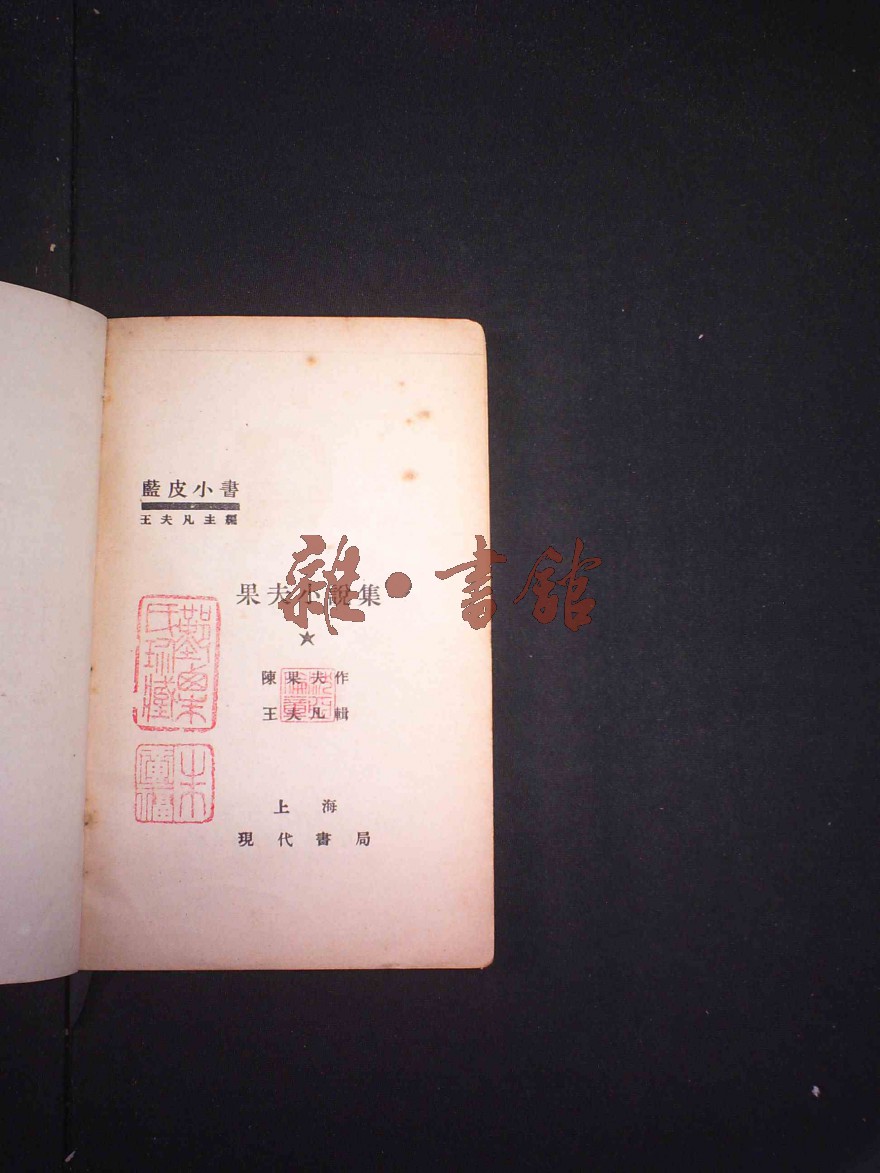 藍皮小書
王夫凡主編
果夫小說集
★
陳果夫作
王夫凡輯
上海
現代書局
雜·書館